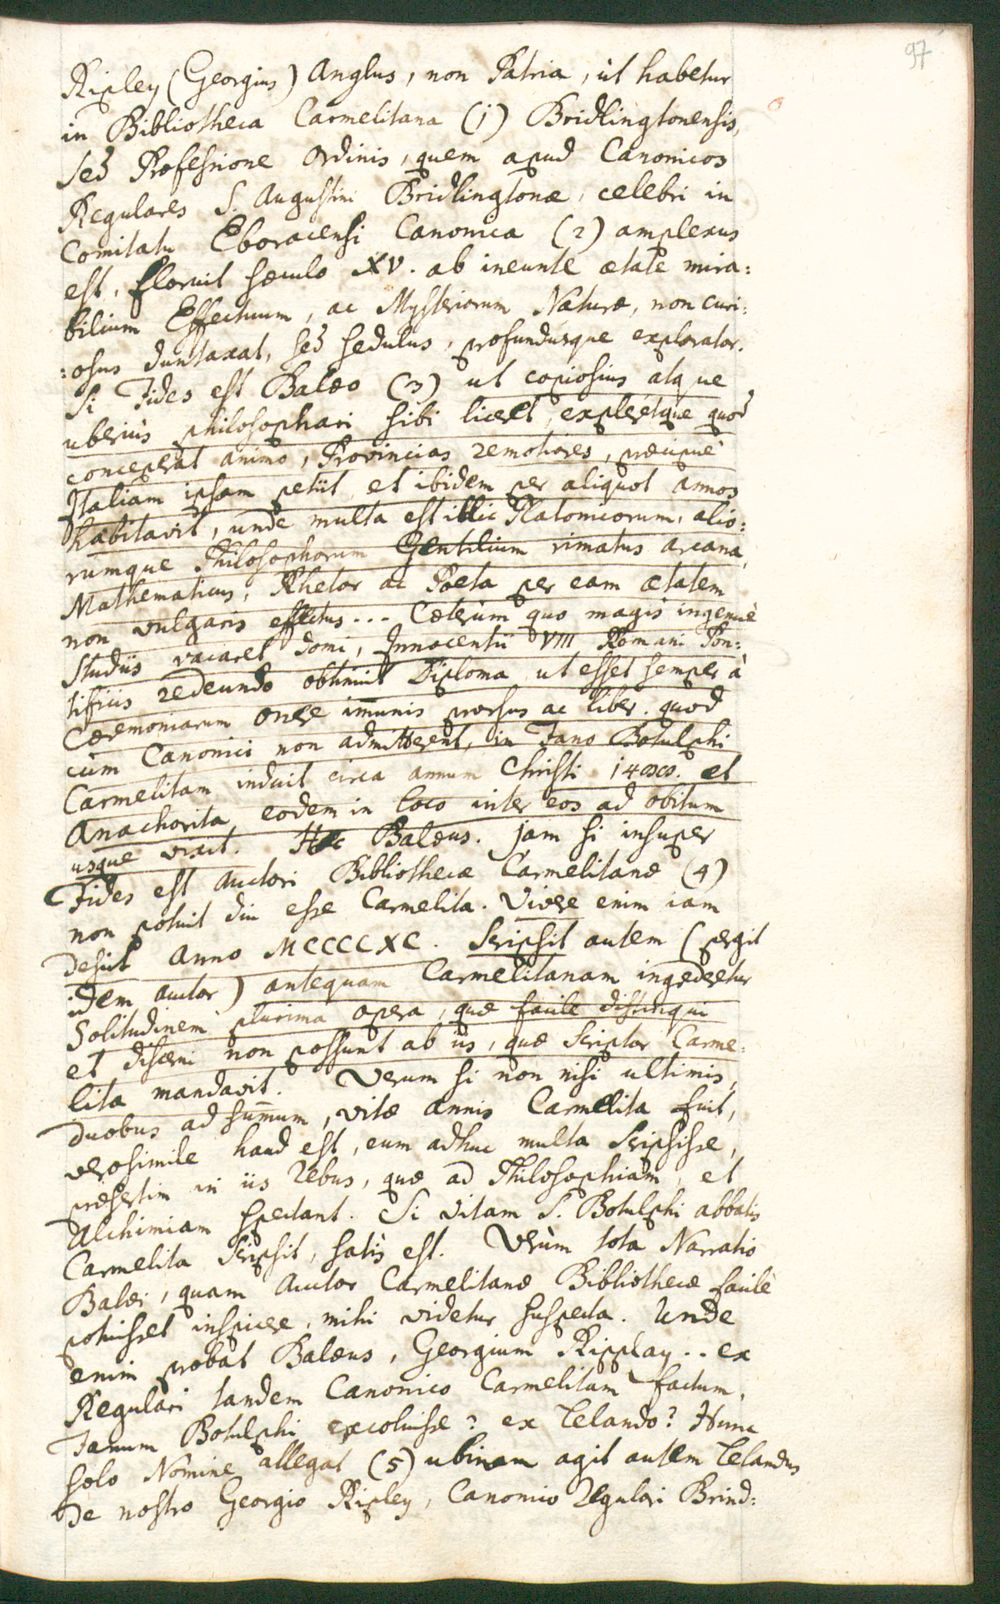 97
Ripley (Georgius) Anglus, non Patria, ut habetur
in Bibliotheca Carmelitana (1) Bridlingtonensis,
sed Professione Ordinis, quem apud Canonicos
Regulares S. Augustini Bridlingtonæ, celebri in
Comitatu Eboracensi Canonica (2) amplexus
est, floruit sæculo XV. ab ineunte ætate mira:
bilium Effectuum, ac Mysteriorum Naturæ, non curi:
:osus duntaxat, sed sedulus, profundusque explorator.
Si Fides est Balæo (3) ut copiosius atque
uberius philosophari sibi liceret, expleretque quod
conceperat animo, Provincias remotiores, præcipuè
Italiam ipsam petiit, et ibidem per aliquot annos
habitavit, unde multa est illic Platonicorum, alio:
rumque Philosophorum Gentilium rimatus arcana,
Mathematicus, Rhetor ac Poeta per eam ætatem
non vulgaris effectus... Cæterum quo magis ingenuè
studiis vacaret domi, Innocentii VIII Romani Pon:
tificis redeundo obtinuit Diploma, ut esset semper à
Cæremoniarum onere imunis prorsus ac liber. quod
cùm Canonici non admitterent, in Fano Botulphi
Carmelitam induit circa annum Christi 1488. et
Anachorita eodem in loco inter eos ad obitum
usque vixit. Hæc Balæus. Jam si insuper
Fides est Auctori Bibliothecæ Carmelitanæ (4)
non potuit diu esse Carmelita. Vivere enim iam
desiit Anno MCCCCXC. Scripsit autem (pergit
idem auctor) antequam Carmelitanam ingrederetur
Solitudinem plurima opera, quæ facile distingui
et discerni non possunt ab iis, quæ Scriptor Carme:
lita mandavit. Verum si non nisi ultimis,
duobus ad summum, vitæ annis Carmelita fuit,
verosimile haud est, eum adhuc multa scripsisse,
præsertim in iis rebus, quæ ad Philosophiam, et
Alchimiam spectant. Si vitam S. Botulphi abbatis
Carmelita scripsit, satis est. Verùm tota Narratio
Balæi, quam Auctor Carmelitanæ Bibliothecæ facilè
potuisset inspicere, mihi videtur suspecta. Unde
enim probat Balæus, Georgium Ripplay.. ex
Regulari tandem Canonico Carmelitam factum,
Fanum Botulphi excoluisse? ex Lelando? Hunc
solo Nomine allegat (5) ubinam agit autem Lelandus
de nostro Georgio Ripley, Canonico Regulari Brind: